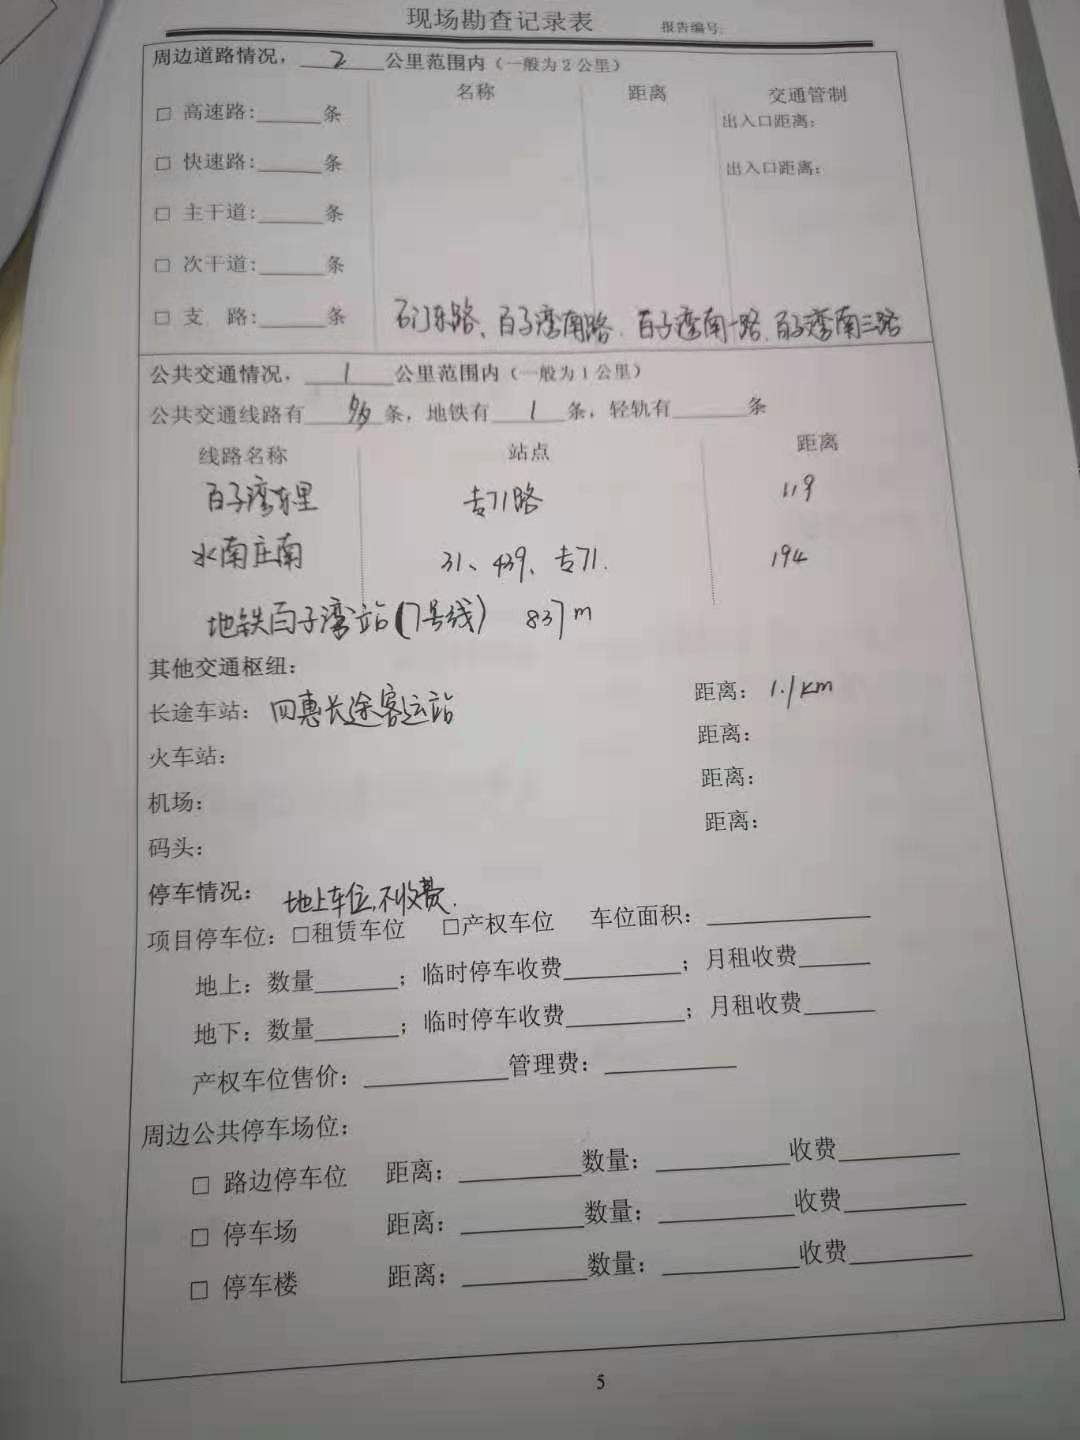 现场勘查记录表 报告编号:
周边道路情况，2公里范围内（一般为2公里）
名称 距离 交通管制
□ 高速路:______条 出入口距离：
□ 快速路:______条 出入口距离：
□ 主干道:______条
□ 次干道:______条
□ 支 路:______条 石门东路、百子湾南路、百子湾南一路、百子湾南三路
公共交通情况，1公里范围内（一般为1公里）
公共交通线路有 多 条，地铁有 1 条，轻轨有______条
线路名称 站点 距离
百子湾东里 专71路 119
水南庄南 31、439、专71. 194
地铁百子湾站(7号线) 837m
其他交通枢纽：
长途车站：四惠长途客运站 距离：1.1km
火车站： 距离：
机场： 距离：
码头： 距离：
停车情况：地上车位,不收费.
项目停车位：□租赁车位 □产权车位 车位面积：____________
地上：数量______；临时停车收费________；月租收费_____
地下：数量______；临时停车收费________；月租收费_____
产权车位售价：__________管理费：__________
周边公共停车场位：
□ 路边停车位 距离：_________数量：_________收费_________
□ 停车场 距离：_________数量：_________收费_________
□ 停车楼 距离：_________数量：_________收费_________
5